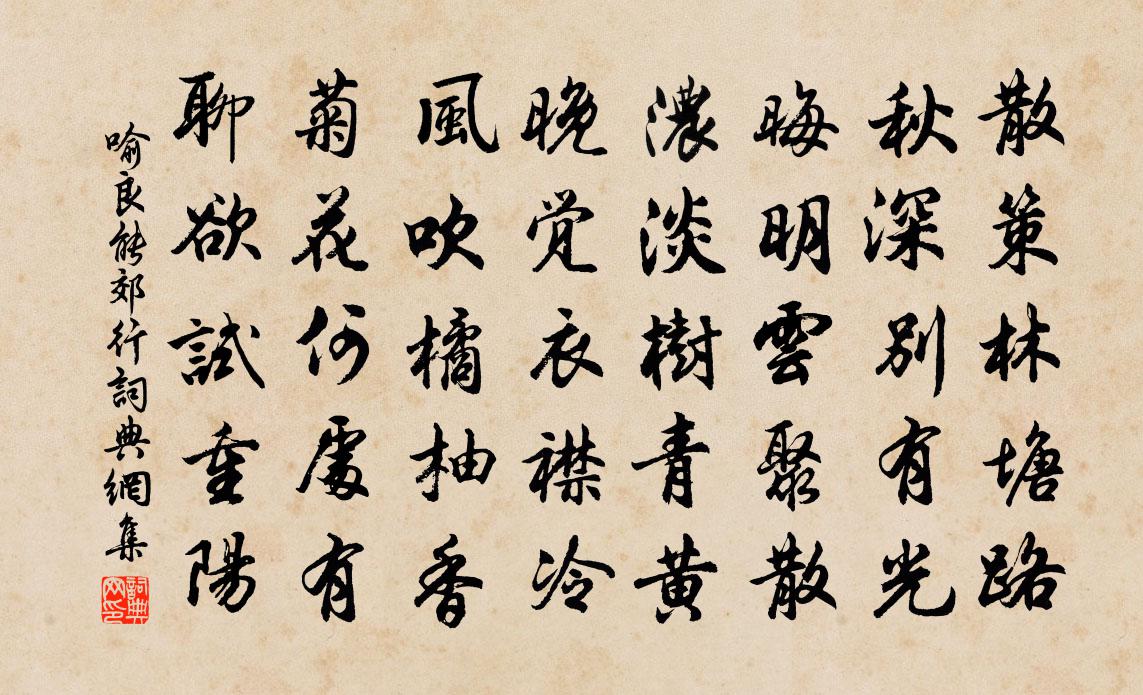 散策林塘路
秋深别有光
晦明雲聚散
濃淡樹青黄
晚觉衣襟冷
風吹橘柚香
菊花何處有
聊欲試重陽
喻良能郊行詞典網集
詞典网印